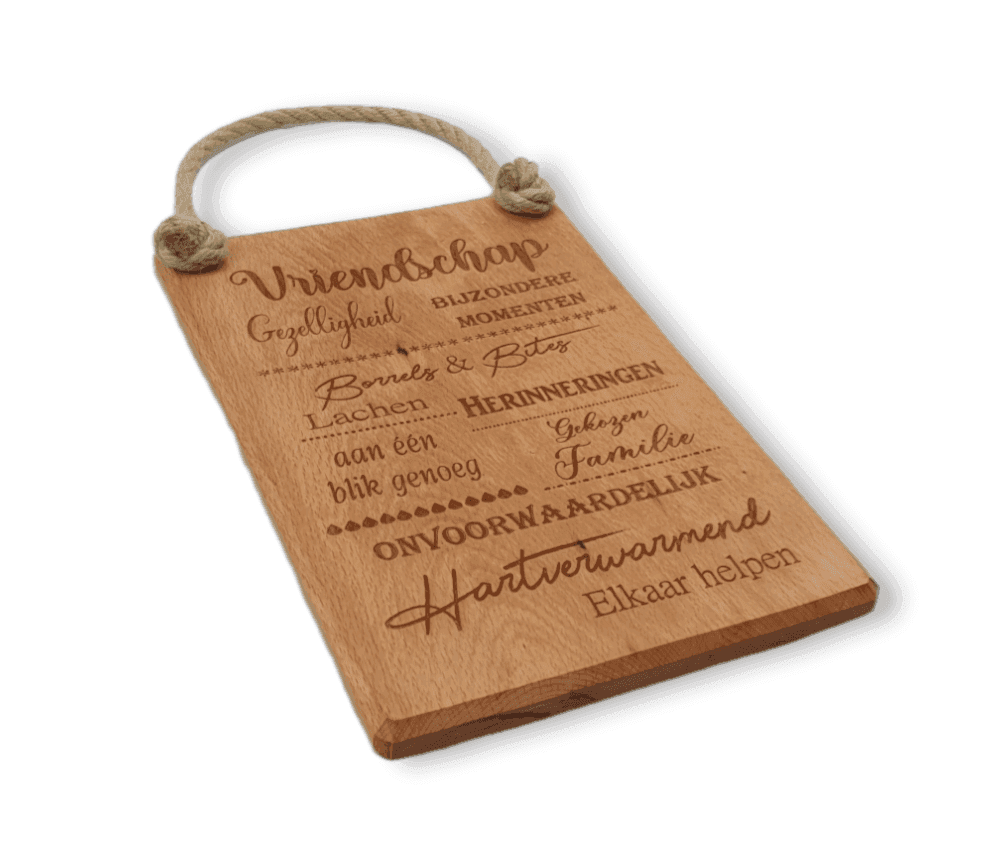 Vriendschap
Gezelligheid
BIJZONDERE
MOMENTEN
Borrels & Bites
LACHEN
HERINNERINGEN
aan één
blik genoeg
Gekozen
Familie
ONVOORWAARDELIJK
Hartverwarmend
Elkaar helpen